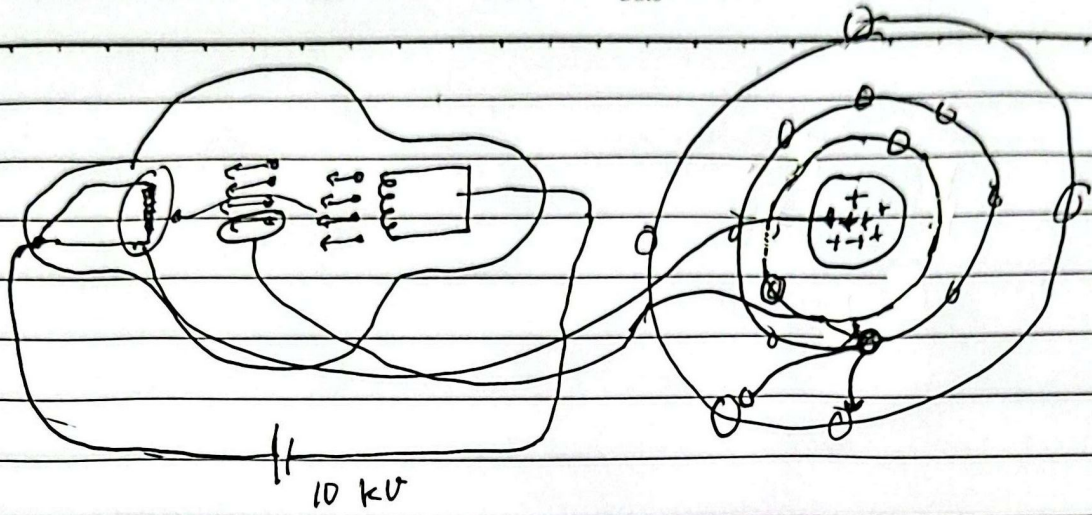 +
+ + + +
+ - +
10 kV